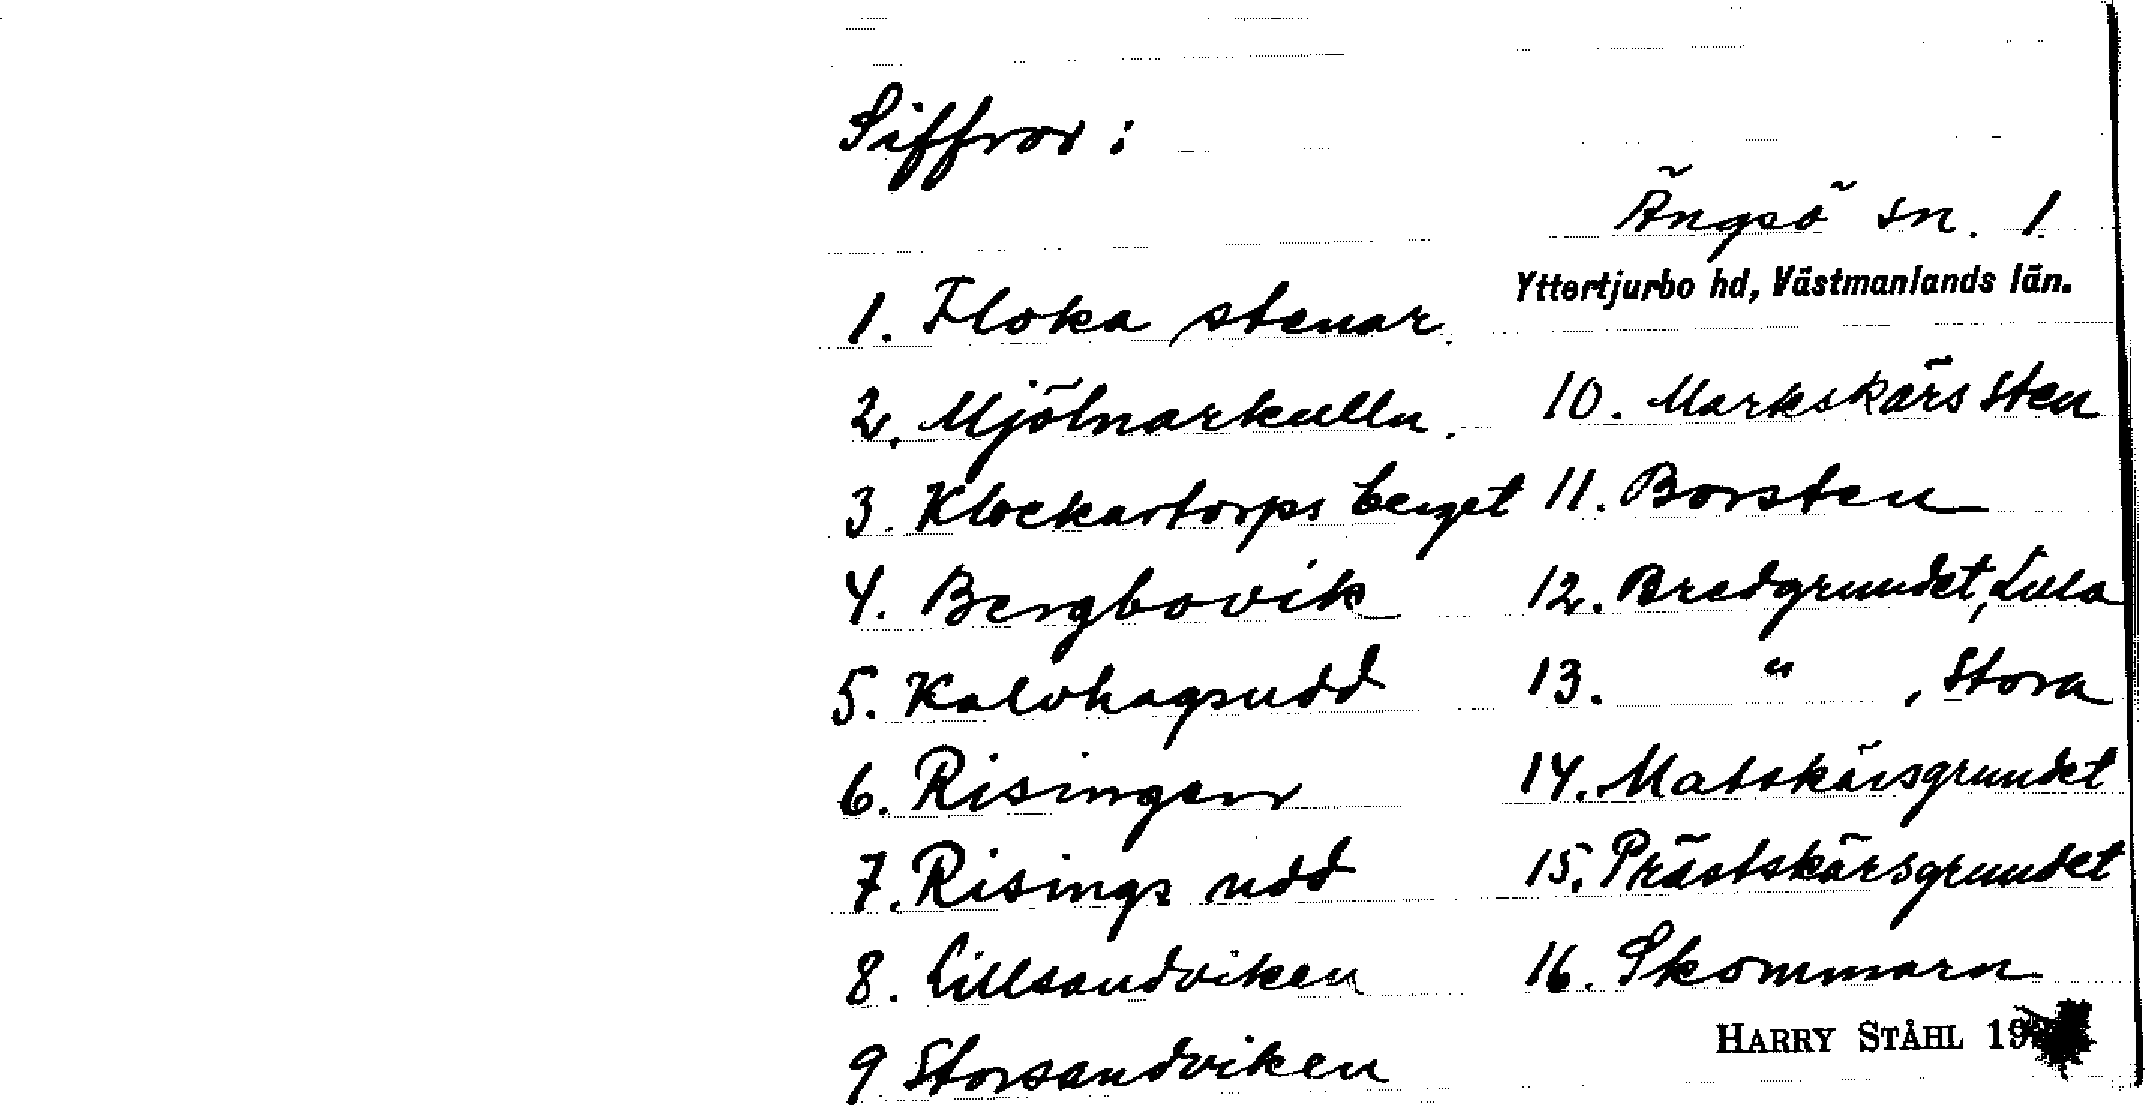 Siffror:
Ängsö sn. 1
Yttertjurbo hd, Västmanlands län.
1. Floka stenar.
2. Mjölnarkulln.
3. Klockartorps berget
4. Bergbovik
5. Kalvhagsudd
6. Risingen
7. Risings udd
8. Lillsandviken
9 Storsandviken
10. Markskärs sten
11. Borsten
12. Bredgrundet, Lilla
13. " , Stora
14. Matskärsgrundet
15. Prästskärsgrundet
16. Skommarn
HARRY STÅHL 19